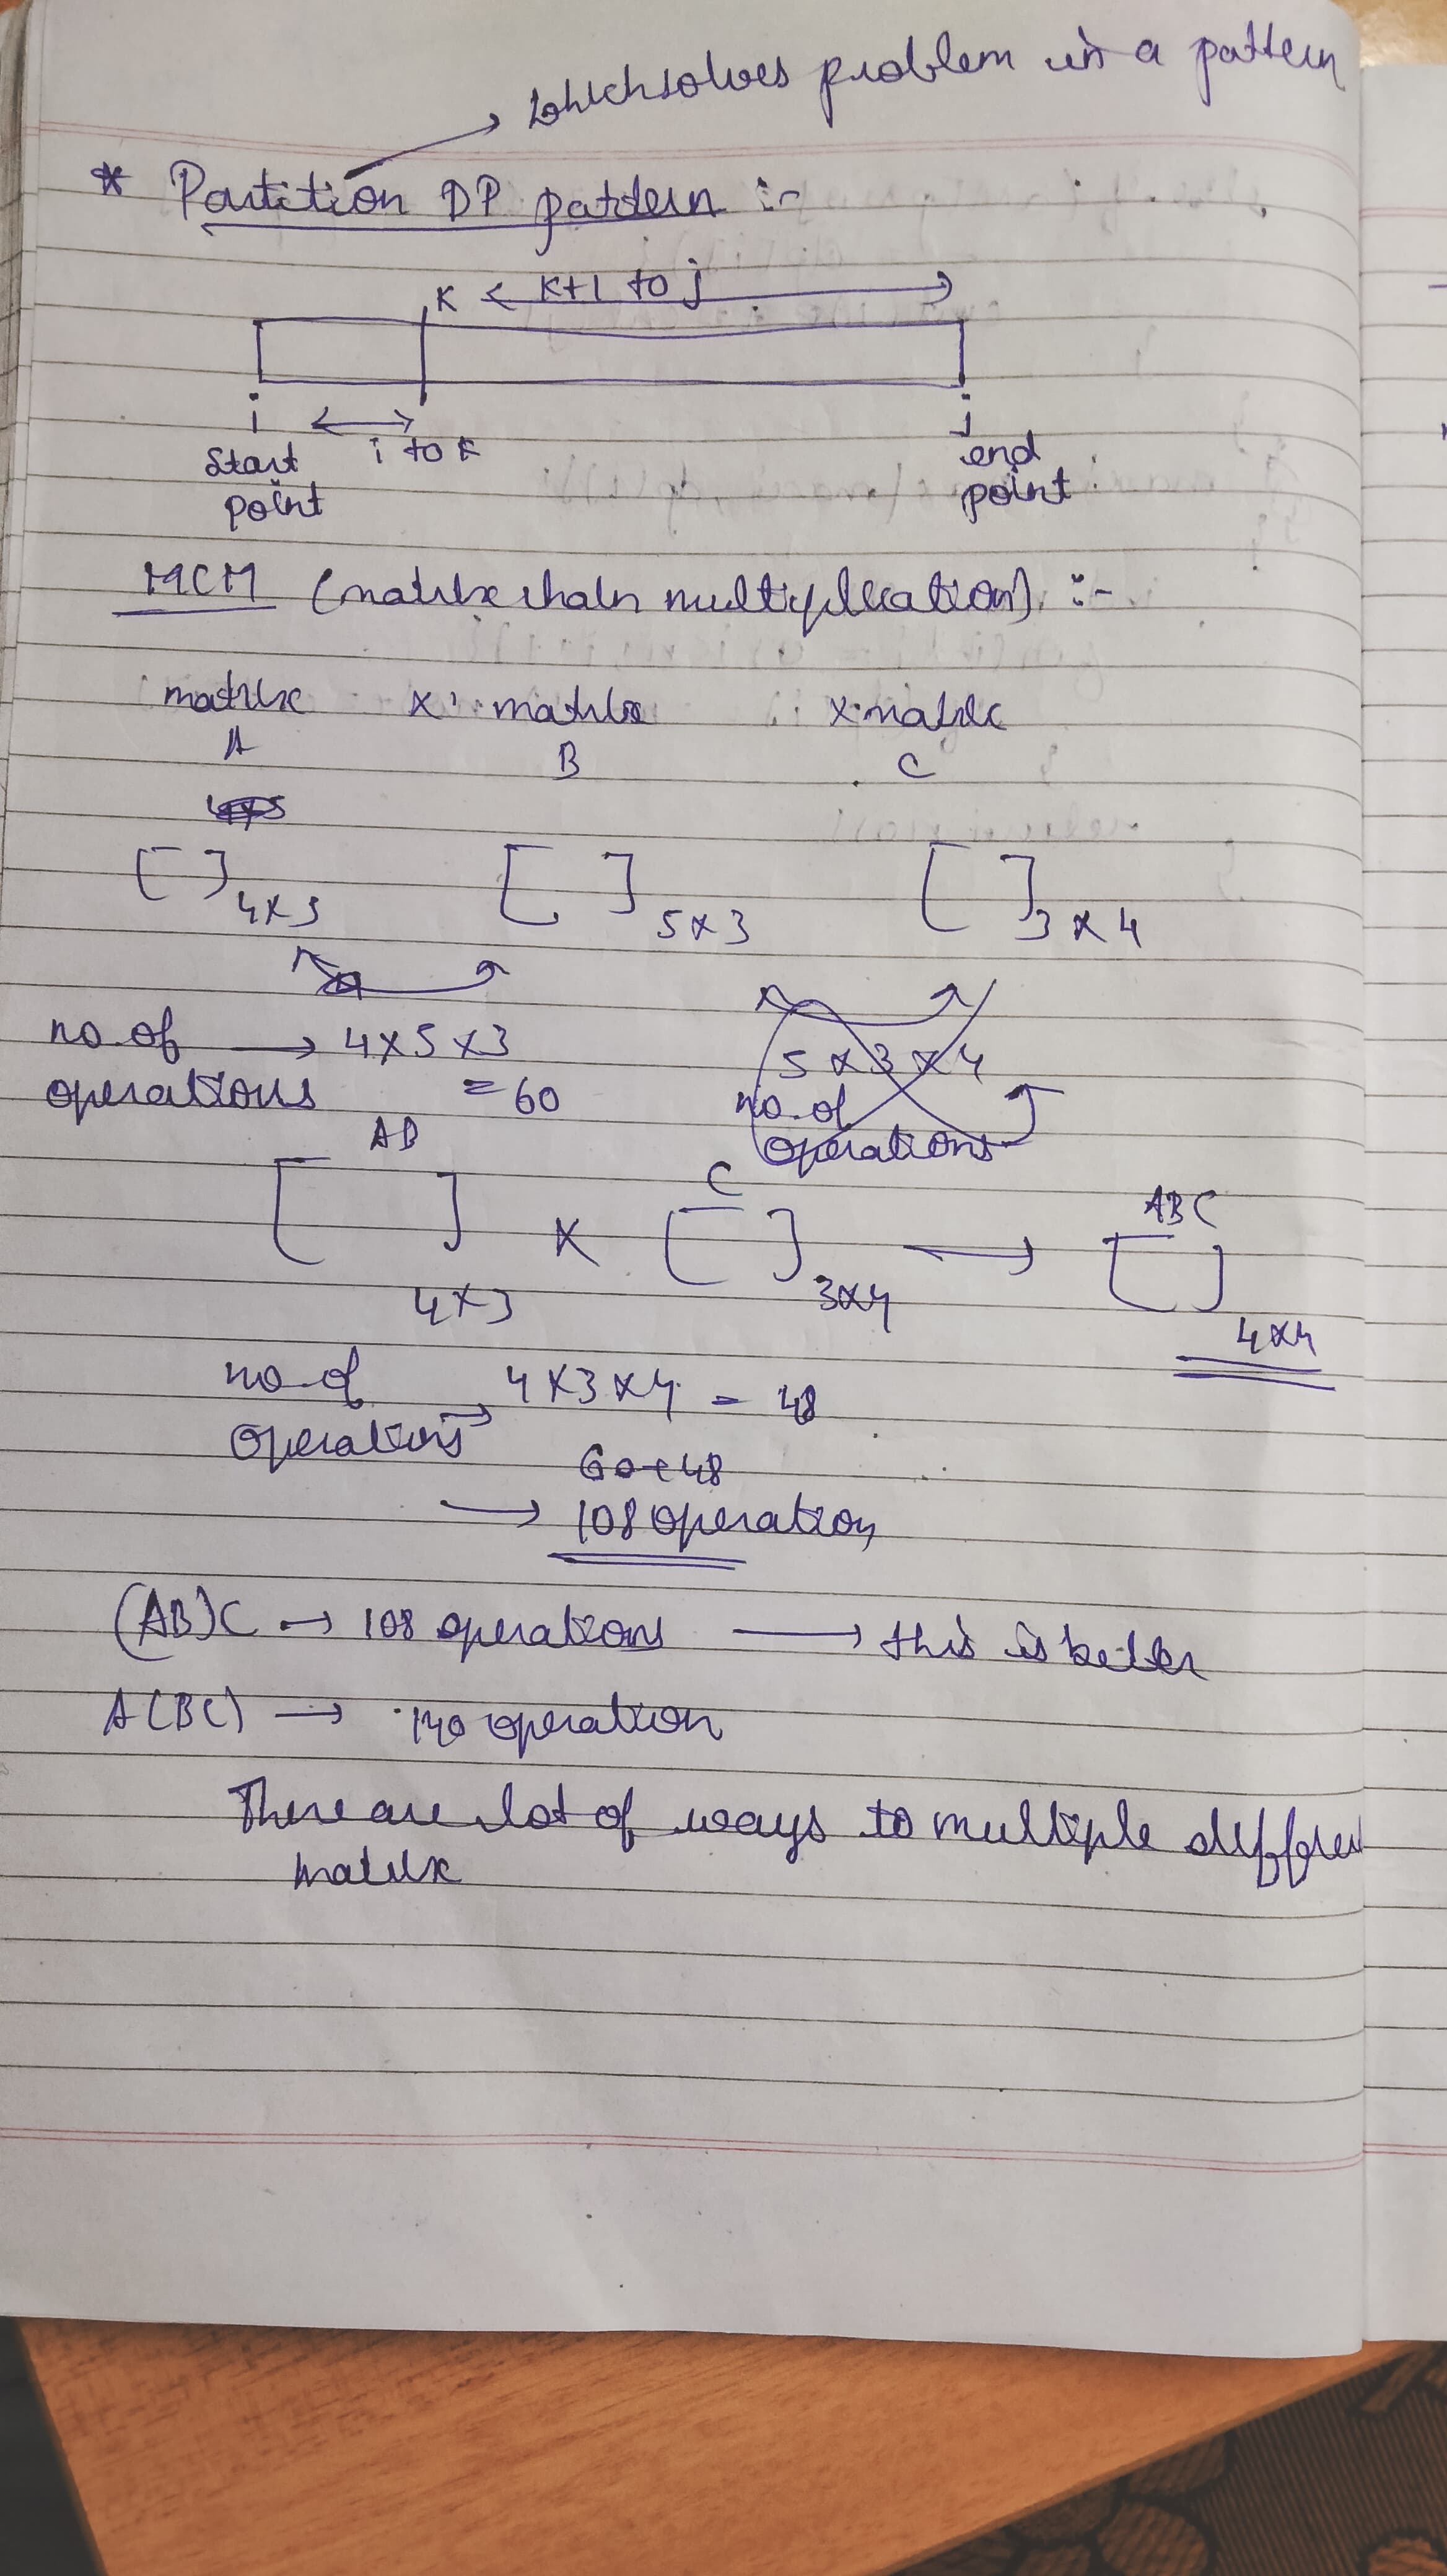 which solves problem in a pattern
* Partition DP pattern :-
K < K+1 to j >
i
i to K
j
start
point
end
point
MCM (matrix chain multiplication) :-
matrix x matrix x matrix
A B C
[ ] 4x5 [ ] 5x3 [ ] 3x4
no. of → 4x5x3
operations = 60
5x3x4
no. of
operations
AB
C
ABC
[ ] 4x3 x [ ] 3x4 → [ ] 4x4
no. of
operations → 4x3x4 = 48
60+48
→ 108 operation
(AB)C → 108 operations → this is better
A(BC) → 140 operation
There are lot of ways to multiple differen
matrix